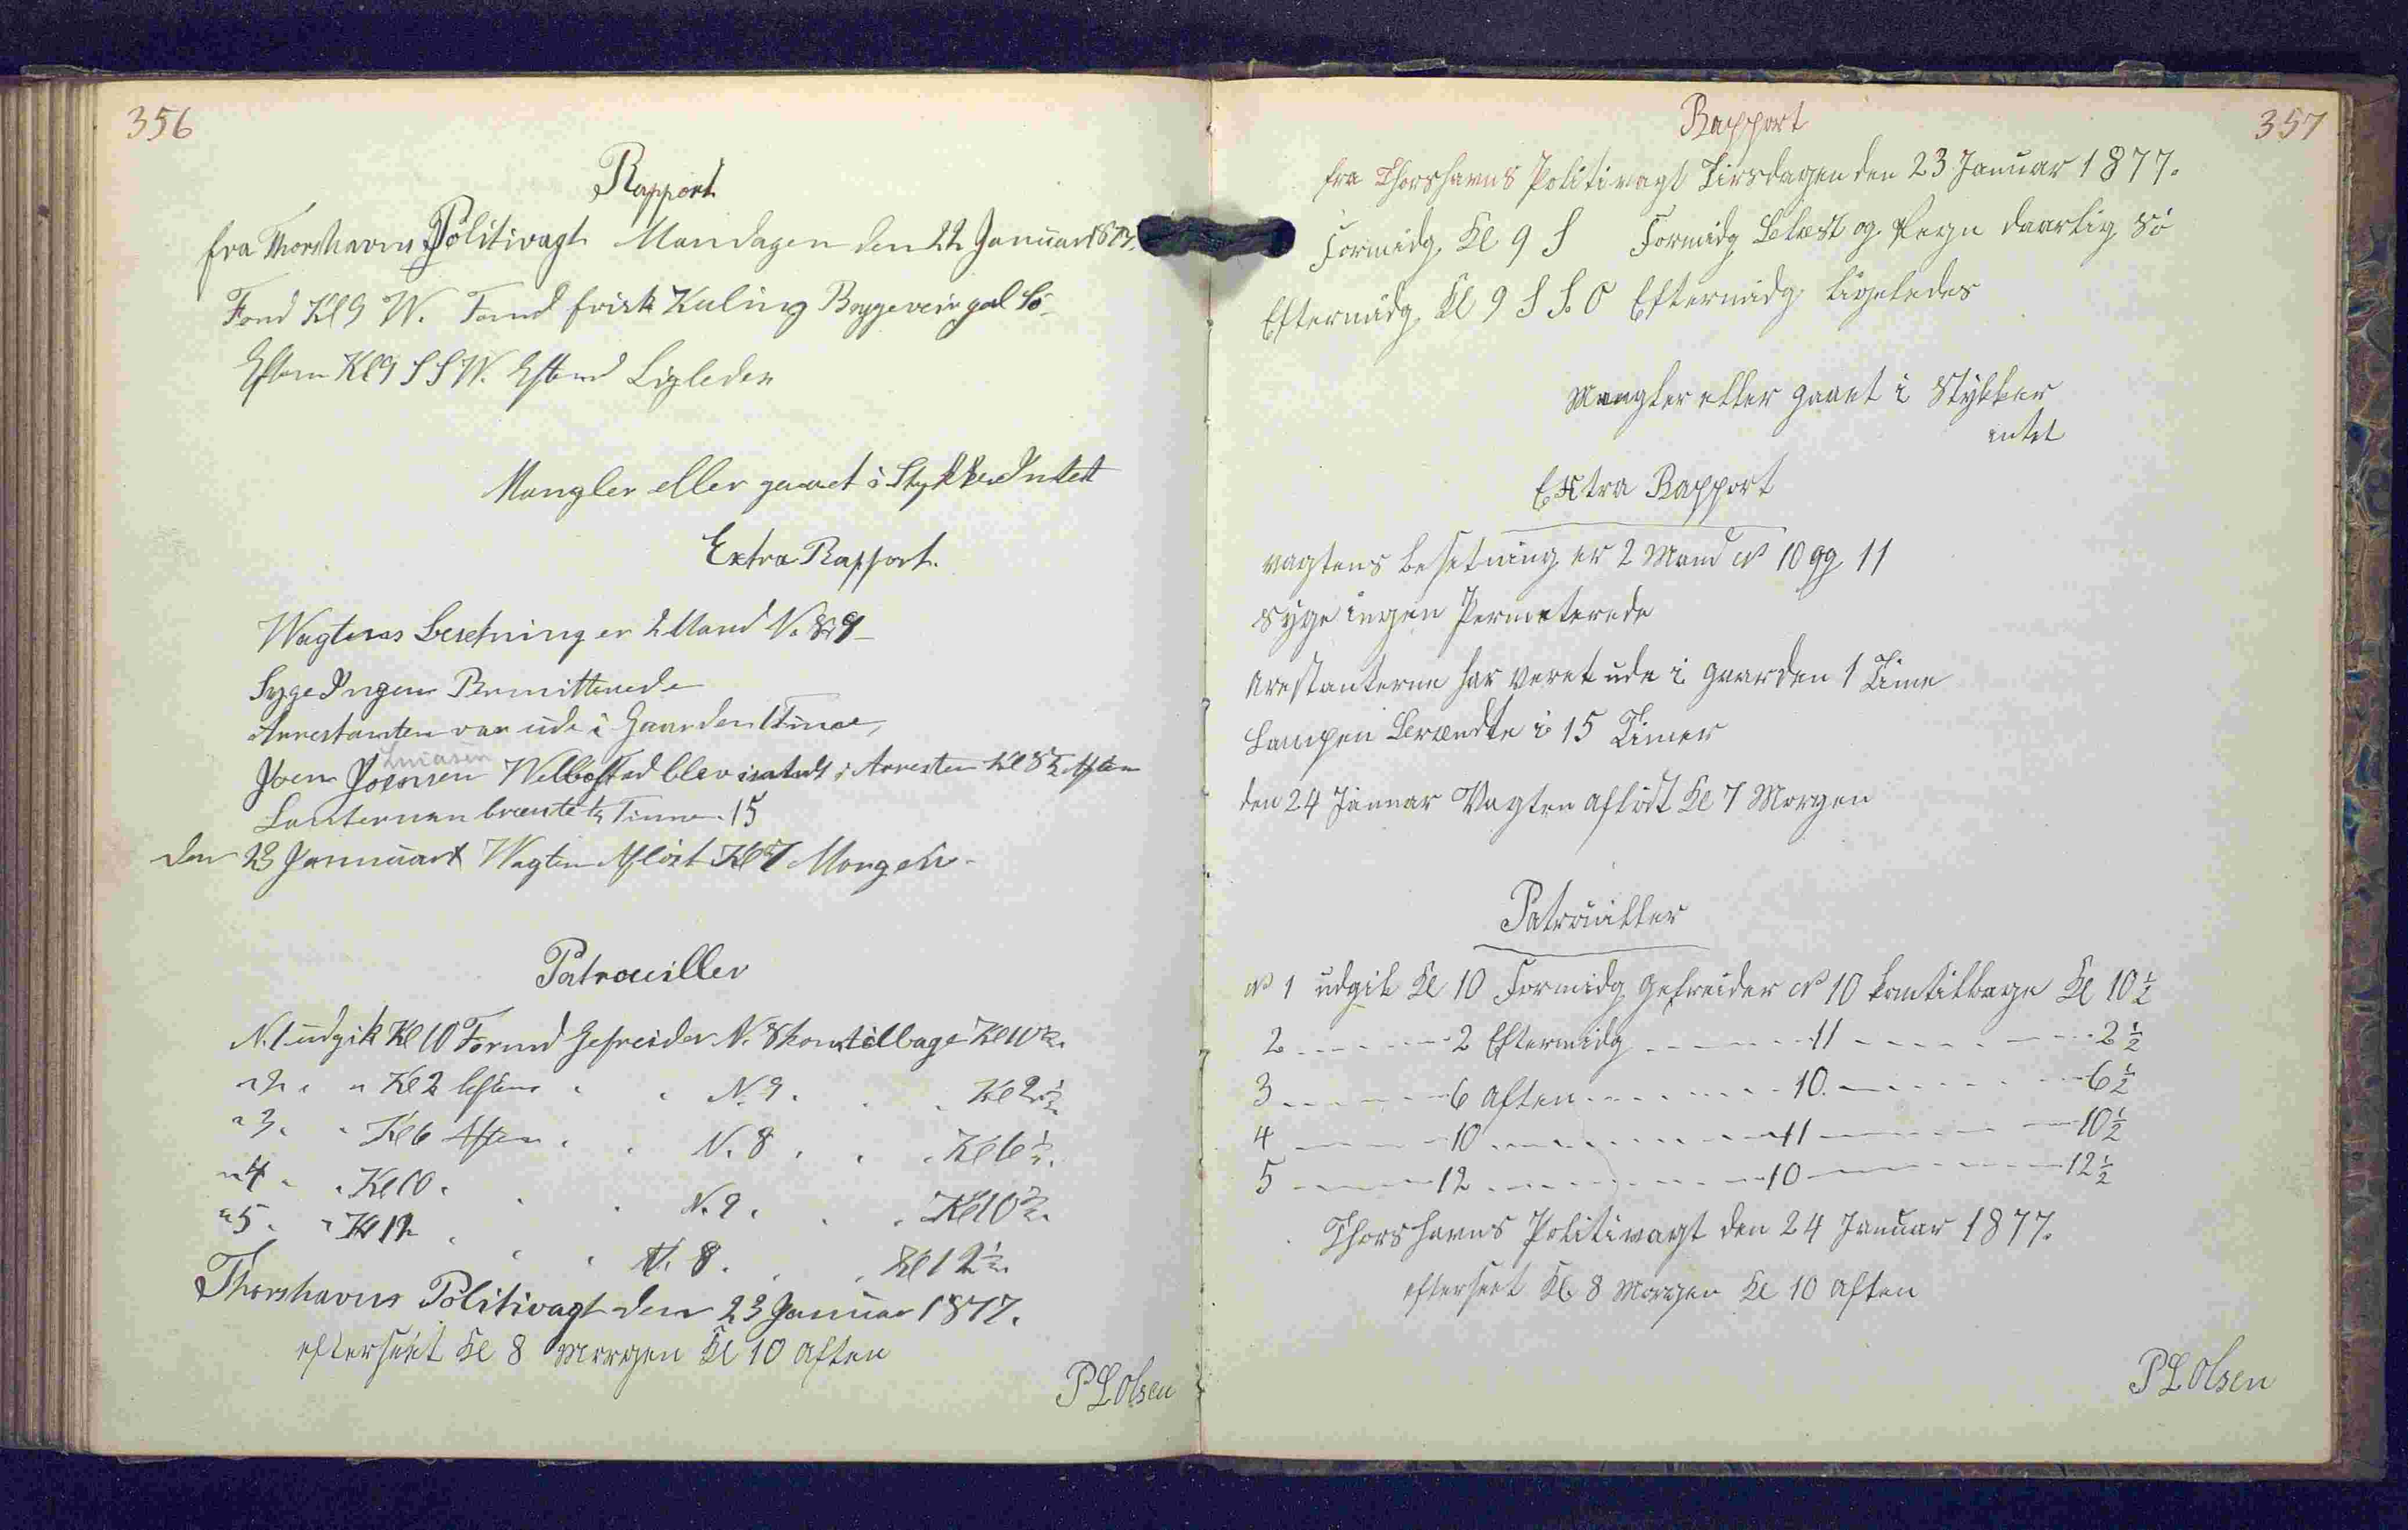 356
Rapport
fra Thorshavns Politivagt Mandagen den 22 Januar 1877.
Formd Kl 9 W. Formd frisk Kuling Byggeveir gal Sö
Efterm Kl 9 S S W. Efterm Ligleden
Mangler eller gaaet i Stykker Intet
Extra Rapport.
Wagtens besetning er 2 Mand N. 8 9
Syge Ingen Permitterede
Arrestanten var ude i Gaarden 1 Time,
Joen Joensen Welbestad blev insatt i Arresten Kl 8½ Aften
Lanternen brændte Timer 15
den 23 Januar Wagten Aflöst Kl 7 Morgen
Patrouiller
N. 1 udgik Kl 10 Formd Gefreider N. 8 kom tilbage Kl 10½.
" 2 " " Kl 2 Efterm " " N. 9 " " " Kl 2½
" 3 " " Kl 6 Aften " " N. 8 " " " Kl 6½.
" 4 " " Kl 10 " " " N. 9 " " " Kl 10½.
" 5 " " Kl 12 " " " N. 8 " " " Kl 12½
Thorshavns Politivagt den 23 Januar 1877.
efterseet Kl 8 Morgen Kl 10 Aften
P L Olsen
357
Rapport
fra Thorshavns Politivagt Tirsdagen den 23 Januar 1877.
Formidg. Kl 9 S Formidg Blæst og Regn daarlig Sö
Eftermidg. Kl 9 S S. O Eftermidg ligeledes
Mangler eller gaaet i Stykker
intet
Extra Rapport
vagtens besetning er 2 Mand No 10 og 11
Syge ingen Permeterede
Arestanterne har veret ude i gaarden 1 Time
Lampen Brændte i 15 Timer
den 24 Januar Vagten aflöst Kl 7 Morgen
Patrouiller
No 1 udgik Kl 10 Formidg gefreider No 10 kom tilbage Kl 10½
2 - - - - - 2 Eftermidg - - - - 11 - - - - - 2½
3 - - - - - 6 Aften - - - - - 10 - - - - - 6½
4 - - - - - 10 - - - - - 11 - - - - - 10½
5 - - - - - 12 - - - - - 10 - - - - - 12½
Thorshavns Politivagt den 24 Januar 1877.
efterseet Kl 8 Morgen Kl 10 Aften
P L Olsen